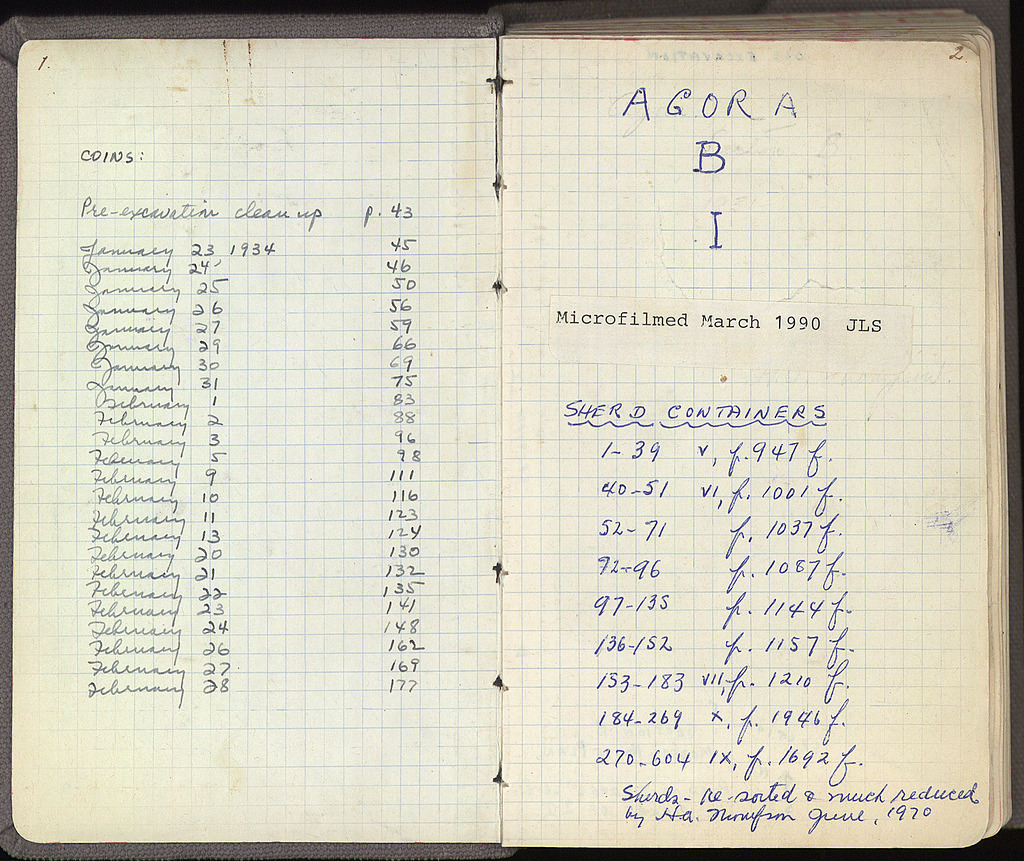 1.
COINS:
Pre-excavation clean up p. 43
January 23, 1934 45
January 24 46
January 25 50
January 26 56
January 27 59
January 29 66
January 30 69
January 31 75
February 1 83
February 2 88
February 3 96
February 5 98
February 9 111
February 10 116
February 11 123
February 13 124
February 20 130
February 21 132
February 22 135
February 23 141
February 24 148
February 26 162
February 27 169
February 28 177
2.
AGORA
B
I
Microfilmed March 1990 JLS
SHERD CONTAINERS
1-39 V, p. 947 f.
40-51 VI, p. 1001 f.
52-71 p. 1037 f.
72-96 p. 1087 f.
97-135 p. 1144 f.
136-152 p. 1157 f.
153-183 VII, p. 1210 f.
184-269 X, p. 1946 f.
270-604 IX, p. 1692 f.
Sherds - re-sorted & much reduced
by H.A. Thompson June, 1970